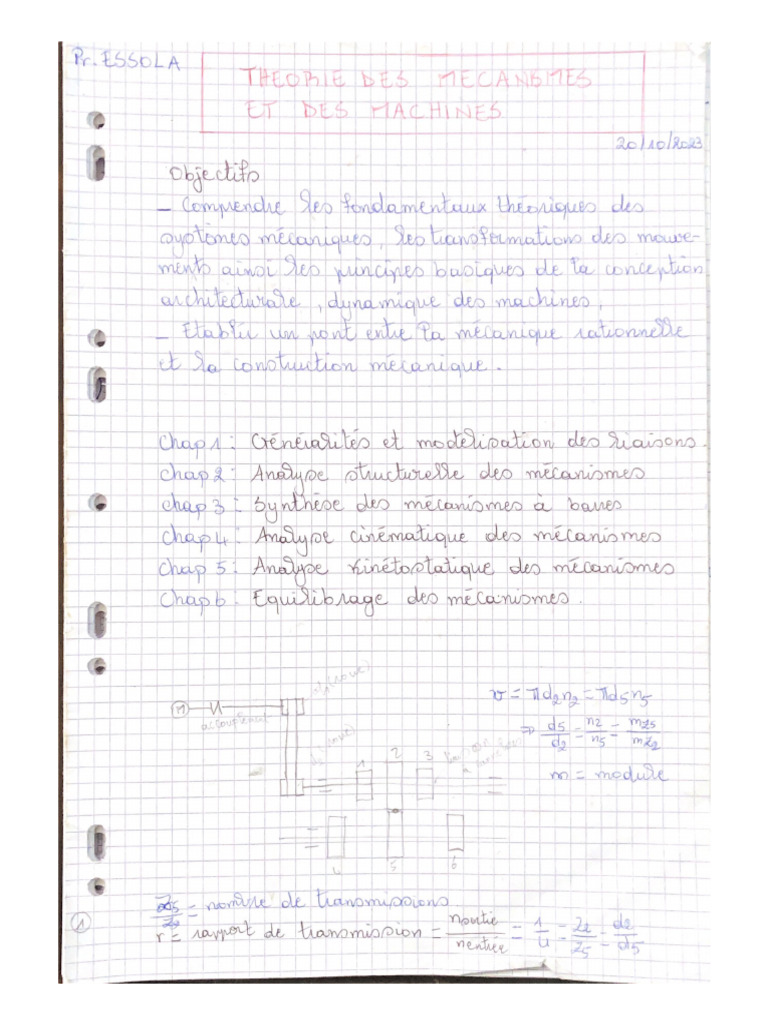 Pr. ESSOLA
THEORIE DES MECANSMES
ET DES MACHINES
20/10/2023
Objectifs
- Comprendre les fondamentaux théoriques des
systèmes mécaniques, les transformations des mouve-
ments ainsi les principes basiques de la conception
architecturale, dynamique des machines,
- Etablir un pont entre la mécanique rationnelle
et la construction mécanique.
Chap 1 : Généralités et modélisation des liaisons.
Chap 2 : Analyse structurelle des mécanismes
chap 3 : Synthèse des mécanismes à barres
Chap 4 : Analyse cinématique des mécanismes
Chap 5 : Analyse kinétostatique des mécanismes
Chap 6 : Equilibrage des mécanismes.
(roue)
M
accouplement
v = πd2n2 = πd5n5
⇒ d5/d2 = n2/n5 = mZ5/mZ2
m = module
1 2 3
4 5 6
Z5/Z2 = nombre de transmissions
r = rapport de transmission = nsortie/nentrée = 1/u = Z2/Z5 = d2/d5
1